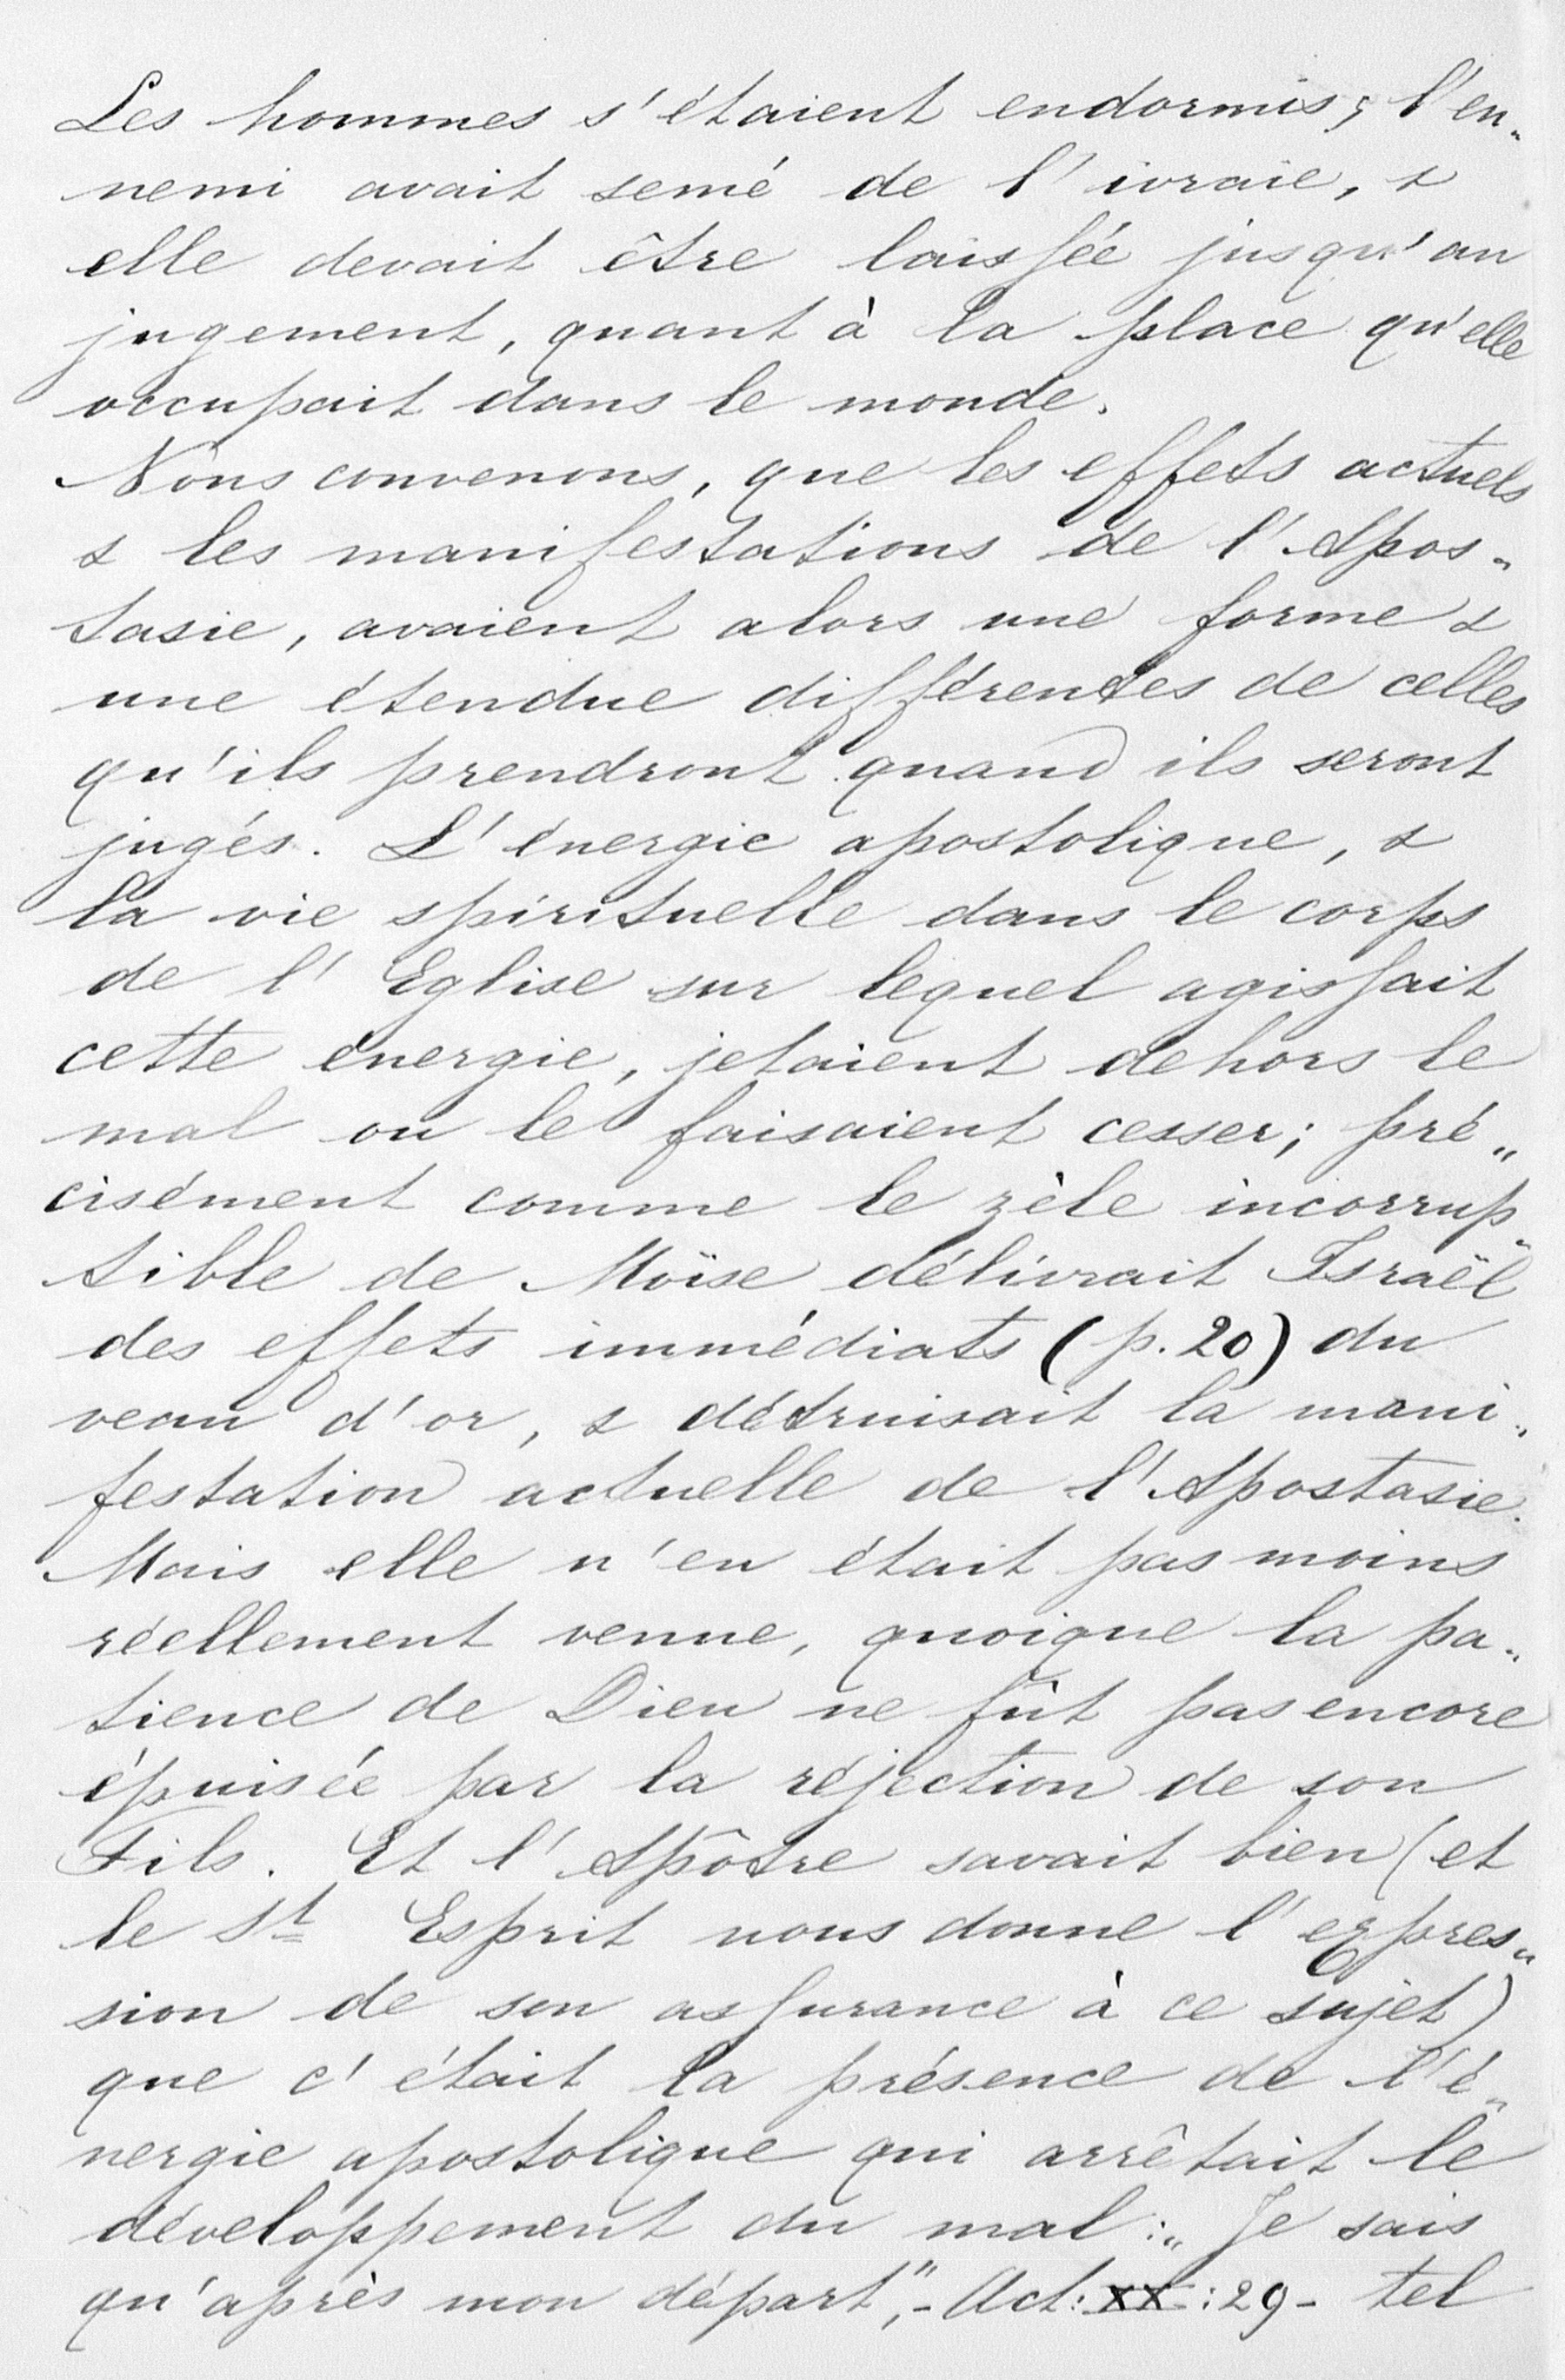 Les hommes s'étaient endormis; l'en„
nemi avait semé de l'ivraie, &
elle devait être laissée jusqu'au
jugement, quant à la place qu'elle
occupait dans le monde.
Nous convenons, que les effets actuels
& les manifestations de l'Apos„
tasie, avaient alors une forme &
une étendue différentes de celles
qu'ils prendront quand ils seront
jugés. L'énergie apostolique, &
la vie spirituelle dans le corps
de l'Eglise sur lequel agissait
cette énergie, jetaient dehors le
mal ou le faisaient cesser; pré„
cisément comme le zèle incorrup„
tible de Moïse délivrait Israël
des effets immédiats (p. 20) du
veau d'or, & détruisait la mani„
festation actuelle de l'Apostasie.
Mais elle n'en était pas moins
réellement venue, quoique la pa„
tience de Dieu ne fût pas encore
épuisée par la réjection de son
Fils. Et l'Apôtre savait bien (et
le St Esprit nous donne l'expres„
sion de son assurance à ce sujet)
que c'était la présence de l'é„
nergie apostolique qui arrêtait le
développement du mal: „Je sais
qu'après mon départ", - Act: XX: 29 - tel